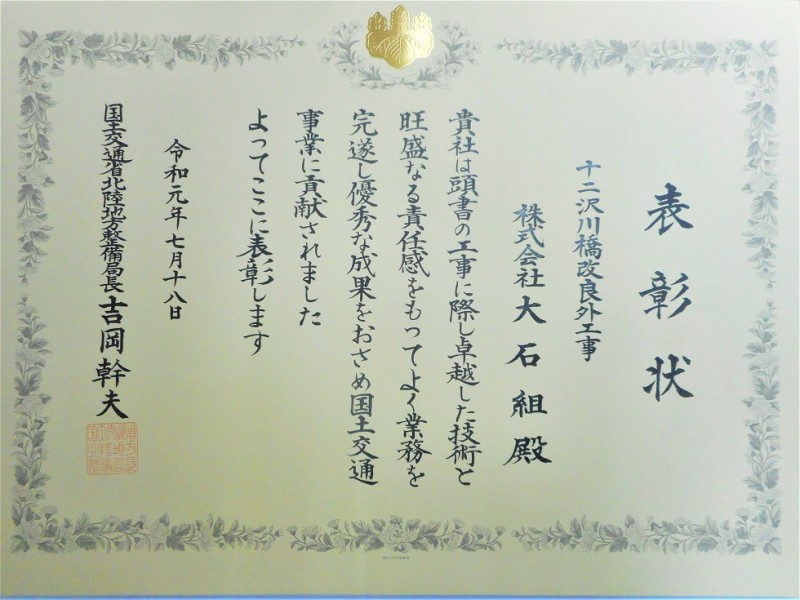 表彰状
十二沢川橋改良外工事
株式会社大石組殿
貴社は頭書の工事に際し卓越した技術と
旺盛なる責任感をもってよく業務を
完遂し優秀な成果をおさめ国土交通
事業に貢献されました
よってここに表彰します
令和元年七月十八日
国土交通省北陸地方整備局長吉岡幹夫